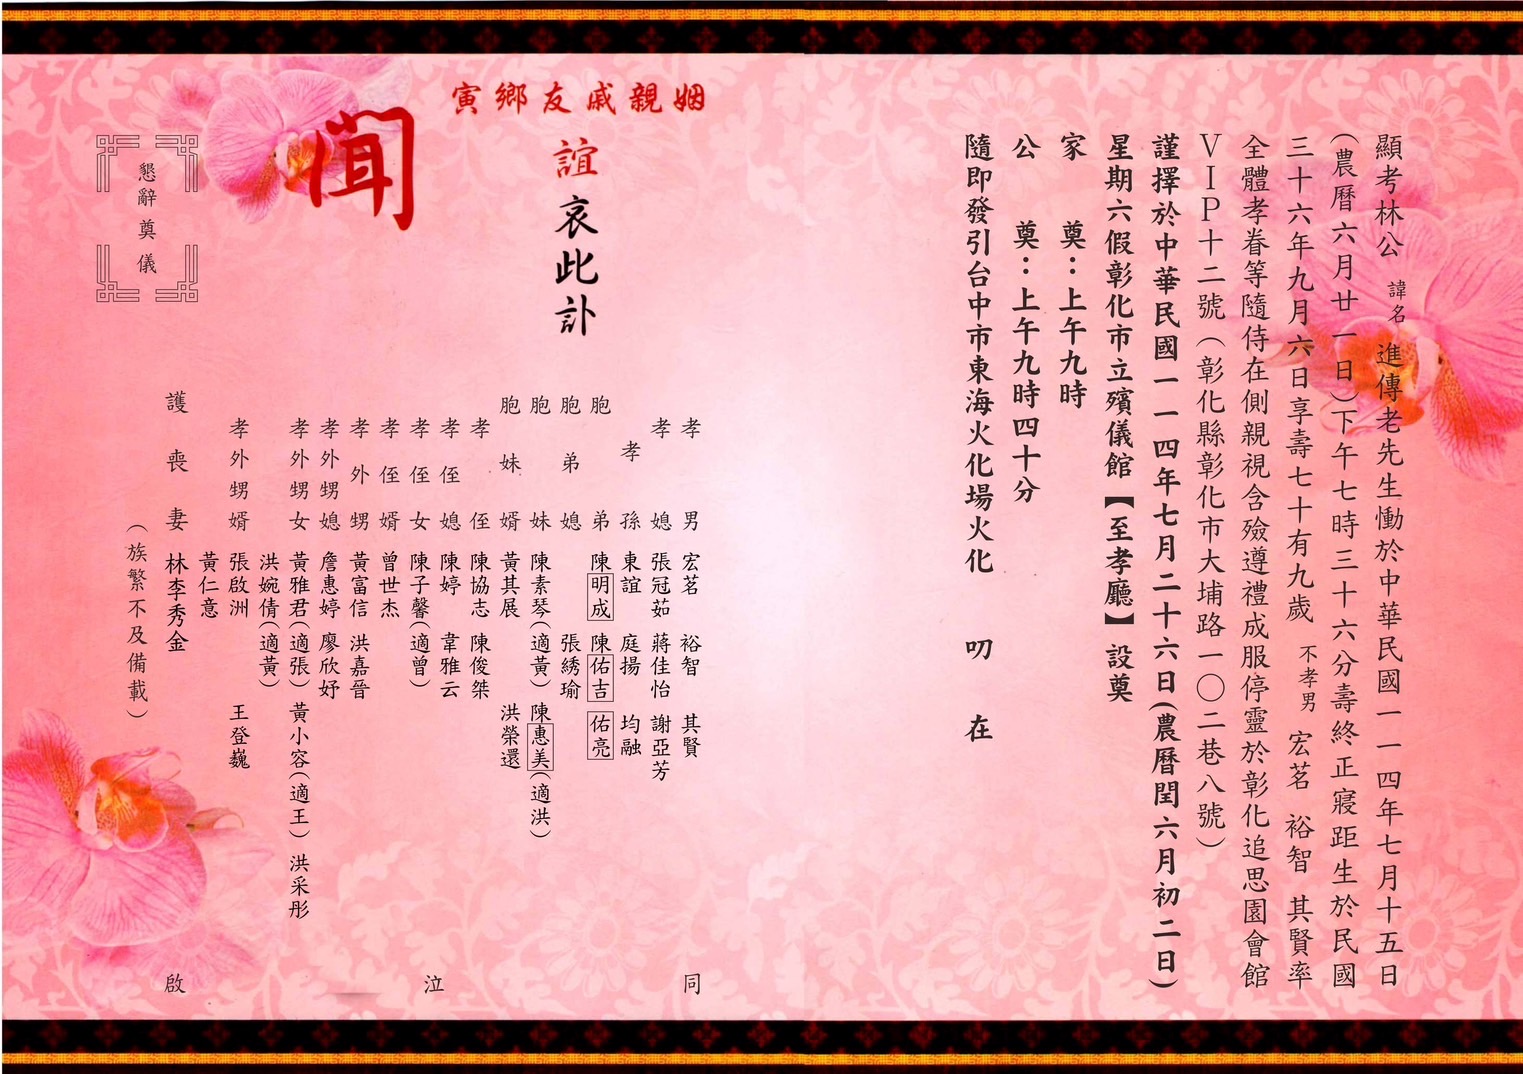 顯考林公 諱名 進傳老先生慟於中華民國一一四年七月十五日
(農曆六月廿一日)下午七時三十六分壽終正寢距生於民國
三十六年九月六日享壽七十有九歲 不孝男 宏茗 裕智 其賢率
全體孝眷等隨侍在側親視含殮遵禮成服停靈於彰化追思園會館
VIP十二號(彰化縣彰化市大埔路一〇二巷八號)
謹擇於中華民國一一四年七月二十六日(農曆閏六月初二日)
星期六假彰化市立殯儀館【至孝廳】設奠
家 奠:上午九時
公 奠:上午九時四十分
隨即發引台中市東海火化場火化 叨 在
姻親戚友鄉寅
誼哀此訃
聞
懇辭奠儀
孝男 宏茗 裕智 其賢
孝媳 張冠茹 蔣佳怡 謝亞芳
孝孫 東誼 庭揚 均融
胞弟 陳明成 陳佑吉 佑亮
胞弟媳 張綉瑜
胞妹 陳素琴(適黃) 陳惠美(適洪)
胞妹婿 黃其展 洪榮還
孝侄 陳協志 陳俊桀
孝侄媳 陳婷 韋雅云
孝侄女 陳子馨(適曾)
孝侄婿 曾世杰
孝外甥 黃富信 洪嘉晉
孝外甥媳 詹惠婷 廖欣妤
孝外甥女 黃雅君(適張) 黃小容(適王) 洪采彤
洪婉倩(適黃)
孝外甥婿 張啟洲 王登巍
黃仁意
護喪妻 林李秀金
(族繁不及備載)
同 泣 啟